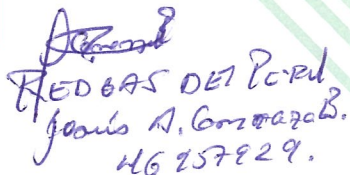 REDGAS DEL PERU
Jesús A. Gonzaga B.
46957929.